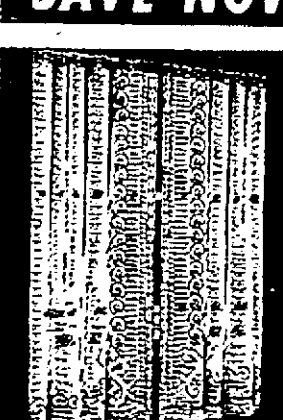 SAVE NOW